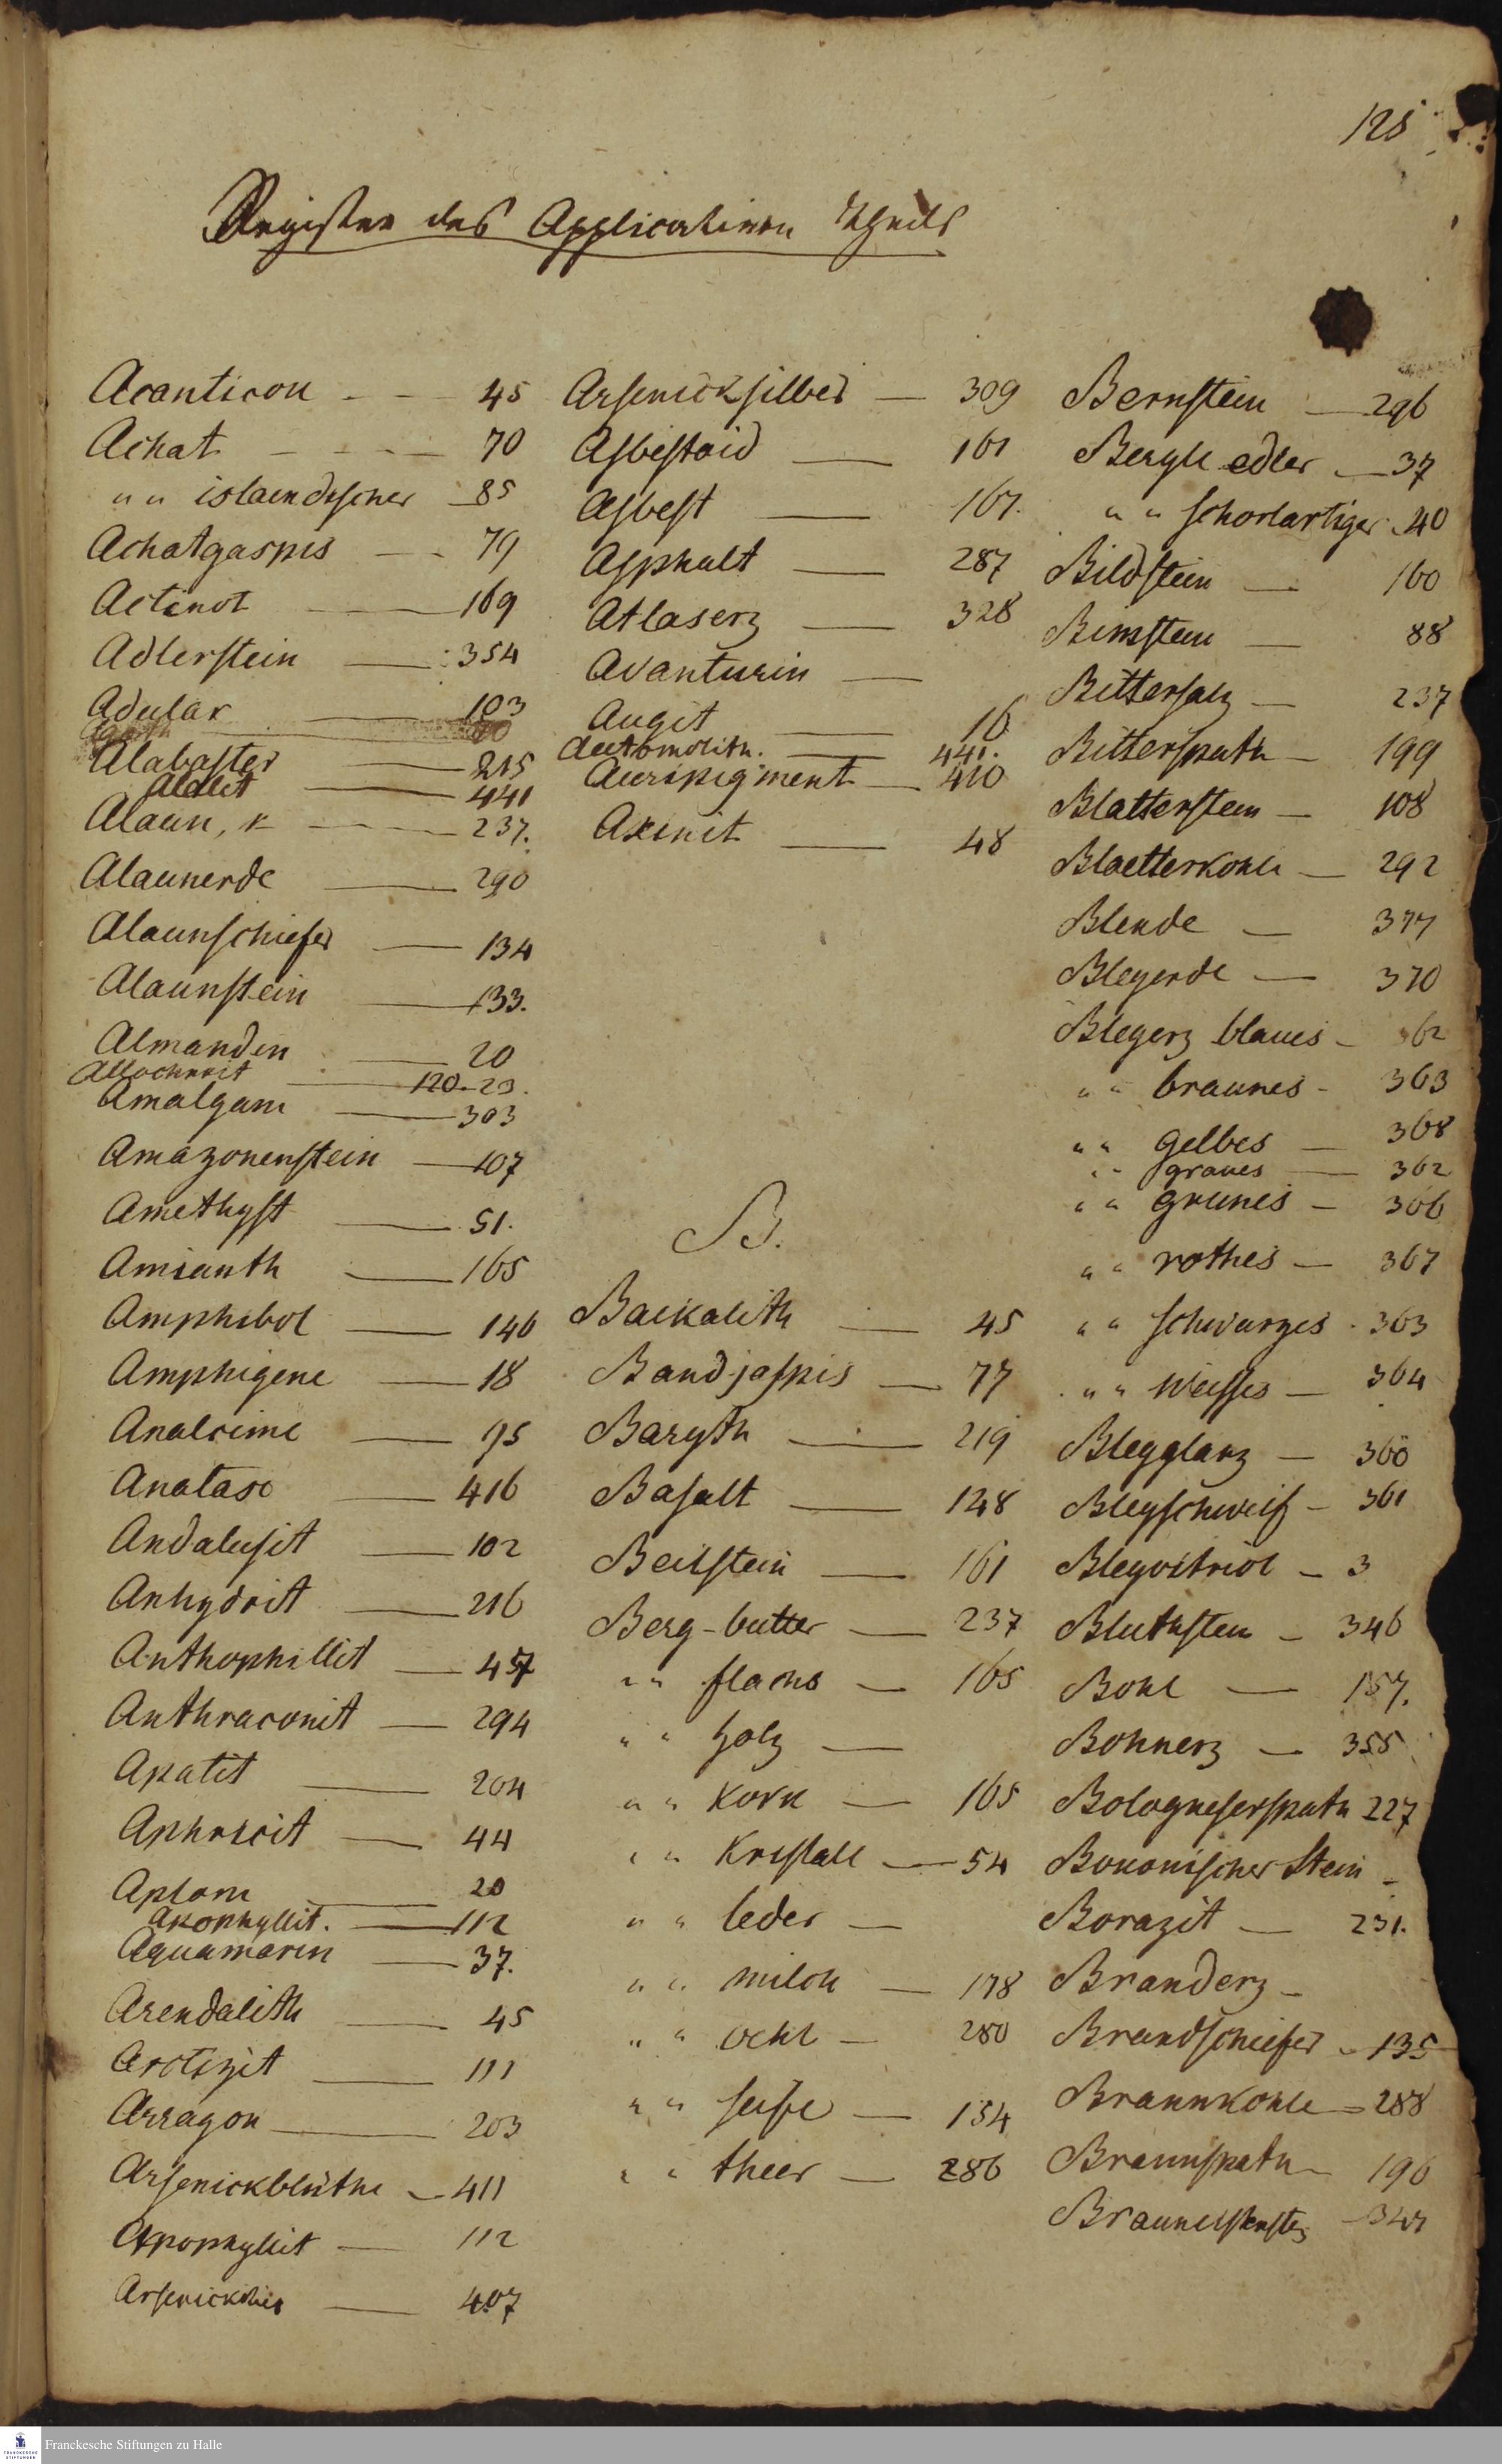 125
Register des Applicativen Theils
Acanticon - - 45
Achat - - - - 70
" " islaendischer - 85
Achatgaspis - - 79
Actinot - 169
Adlerstein - 354
Adular - 103
Alabaster - 215
Alalit - 441
Alaun, - 237.
Alaunerde - 290
Alaunschiefer - 134
Alaunstein - 133.
Almandin - 20
Allochroit - 120-23.
Amalgam - 303
Amazonenstein - 107
Amethyst - 51.
Amianth - 165
Amphibol - 146
Amphigene - 18
Analcime - 95
Anatase - 416
Andalusit - 102
Anhydrit - 216
Anthophillit - 457
Anthraconit - 294
Apatit - 204
Aphrizit - 44
Aplom - 20
Apophyllit. - 112
Aquamarin - 37.
Arendalith - 45
Arctizit - 111
Arragon - 203
Arsenickblüthe - 411
Apophyllit - 112
Arsenickkies - 407
Arsenicksilber - 309
Asbestoid - 161
Asbest - 167.
Asphalt - 287
Atlaserz - 328
Avanturin -
Augit - 16
Automolith. - 441.
Auripigment - 410
Axinit - 48
B.
Baikalith - 45
Band-jaspis - 77
Baryth - 219
Basalt - 148
Beilstein - 161
Berg-butter - 237
" " flachs - 165
" " holz -
" " Kork - 165
" " Kristall - 54
" " leder -
" " milch - 178
" " oehl - 280
" " seife - 154
" " theer - 286
Bernstein - 296
Beryll edler - 37
" " schorlartiger - 40
Bildstein - 160
Bimstein - 88
Bittersalz - 237
Bitterspath - 199
Blatterstein - 108
Blaetterkohle - 292
Blende - 377
Bleyerde - 370
Bleyerz blaues - 62
" " braunes - 363
" " gelbes - 368
" " graues - 362
" " grunes - 366
" " rothes - 367
" " schwarzes - 363
" " weisses - 364
Bleyglanz - 360
Bleyschweif - 361
Bleyvitriol - 3
Bluthstein - 346
Bohl - 157.
Bohnerz - 355
Bologneserspath 227
Bononischer Stein -
Borazit - 231.
Branderz -
Brandschiefer - 135
Braunkohle - 288
Braunspath - 196
Franckesche Stiftungen zu Halle
FRANCKESCHE
STIFTUNGEN